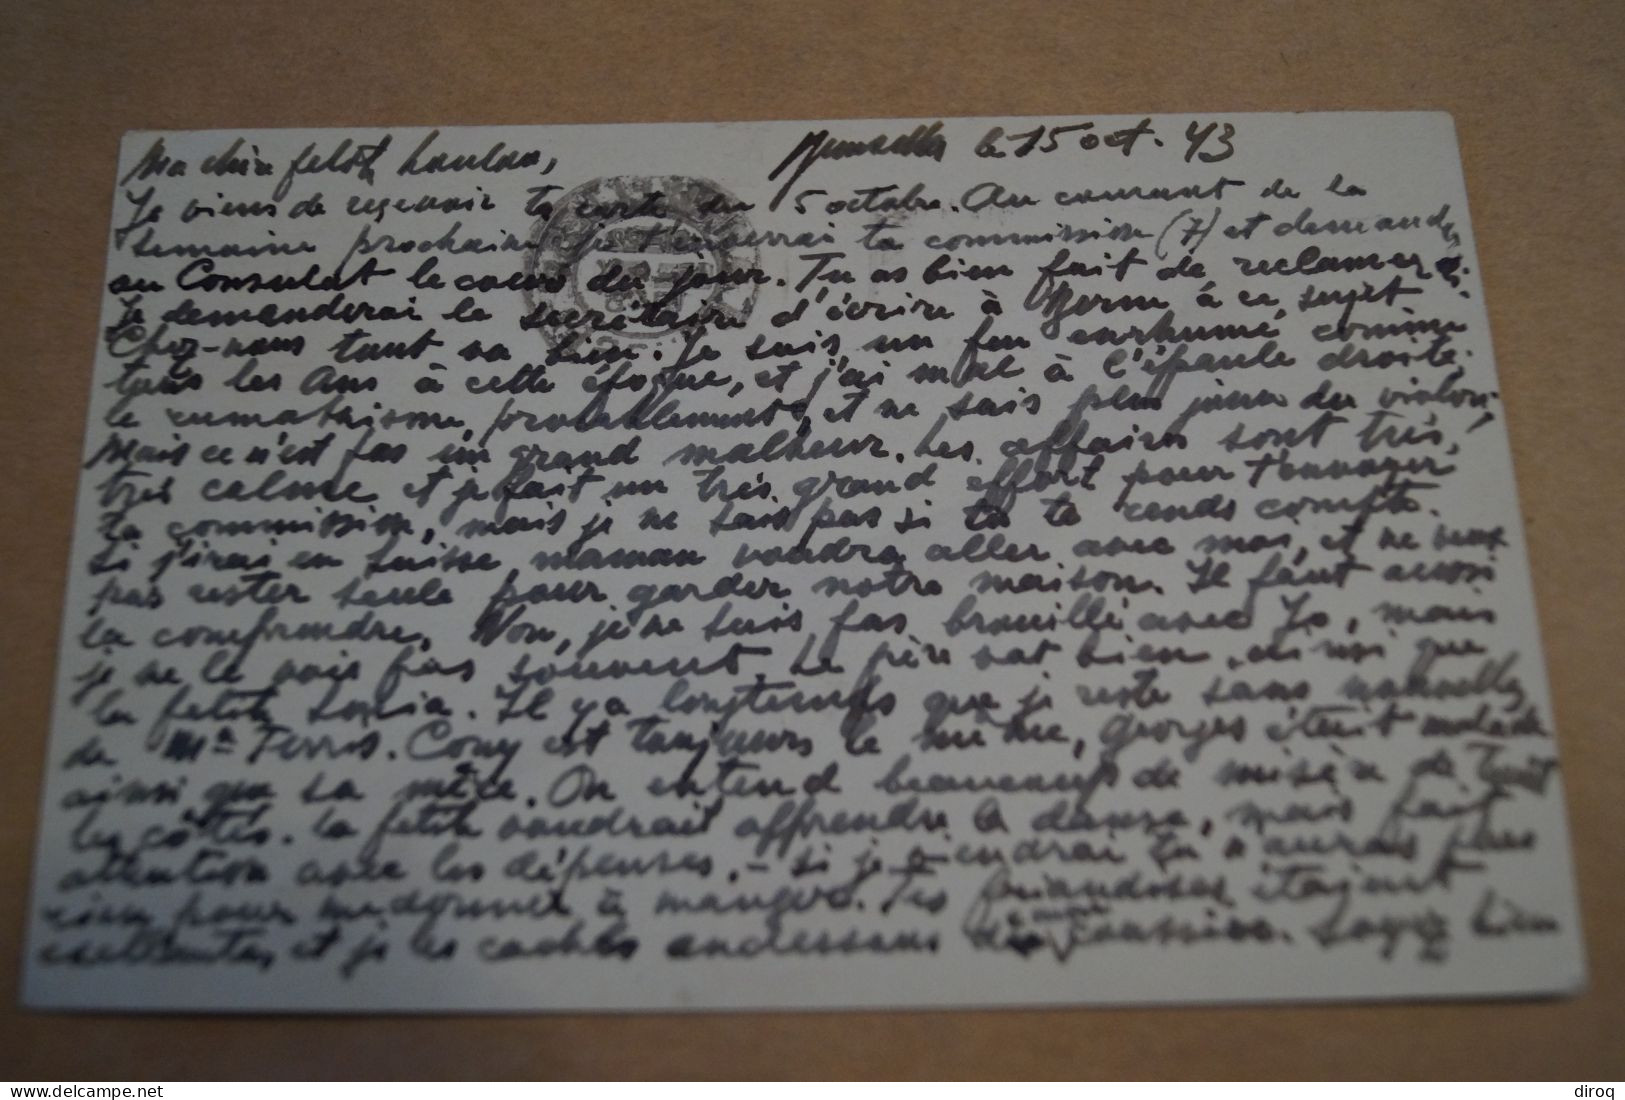 Ma chère petite Loulou, Bruxelles le 15 oct. 43
Je viens de recevoir ta carte du 5 octobre. Au courant de la
semaine prochaine je t'enverrai ta commission (7) et demande
au Consulat le cours du jour. Tu as bien fait de reclamer.
Je demanderai le secrétaire d'écrire à Berne à ce sujet.
Chez-nous tout va bien. Je suis un peu enrhumé comme
tous les Ans à cette époque, et j'ai mal à l'épaule droite.
le rumathisme probablement, et ne sais plus jouer du violon,
mais ce n'est pas un grand malheur. Les affaires sont très,
très calme et je fait un très grand effort pour t'envoyer
ta commission, mais je ne sais pas si tu te rends compte.
Si j'irai en Suisse, maman voudra aller avec moi, et ne veux
pas rester seule pour garder notre maison. Il faut aussi
la comprendre. Non, je ne suis pas brouillé avec Jo, mais
je ne le vois pas souvent. Le père vat bien, ainsi que
la petite Sonia. Il y a longtemps que je reste sans nouvelles
de Mr Ferris. Cony est toujours le même, Georges était malade
ainsi que sa mère. On entend beaucoup de misère de tout
les côtés. la petite voudrait apprendre la danse, mais fait
attention avec les dépenses, – si je viendrai tu n'aurais plus
rien pour me donner à manger. Tes friandises étaient
excellentes, et je les cachés endessous du coussin. Soyez bien
diroq
www.delcampe.net